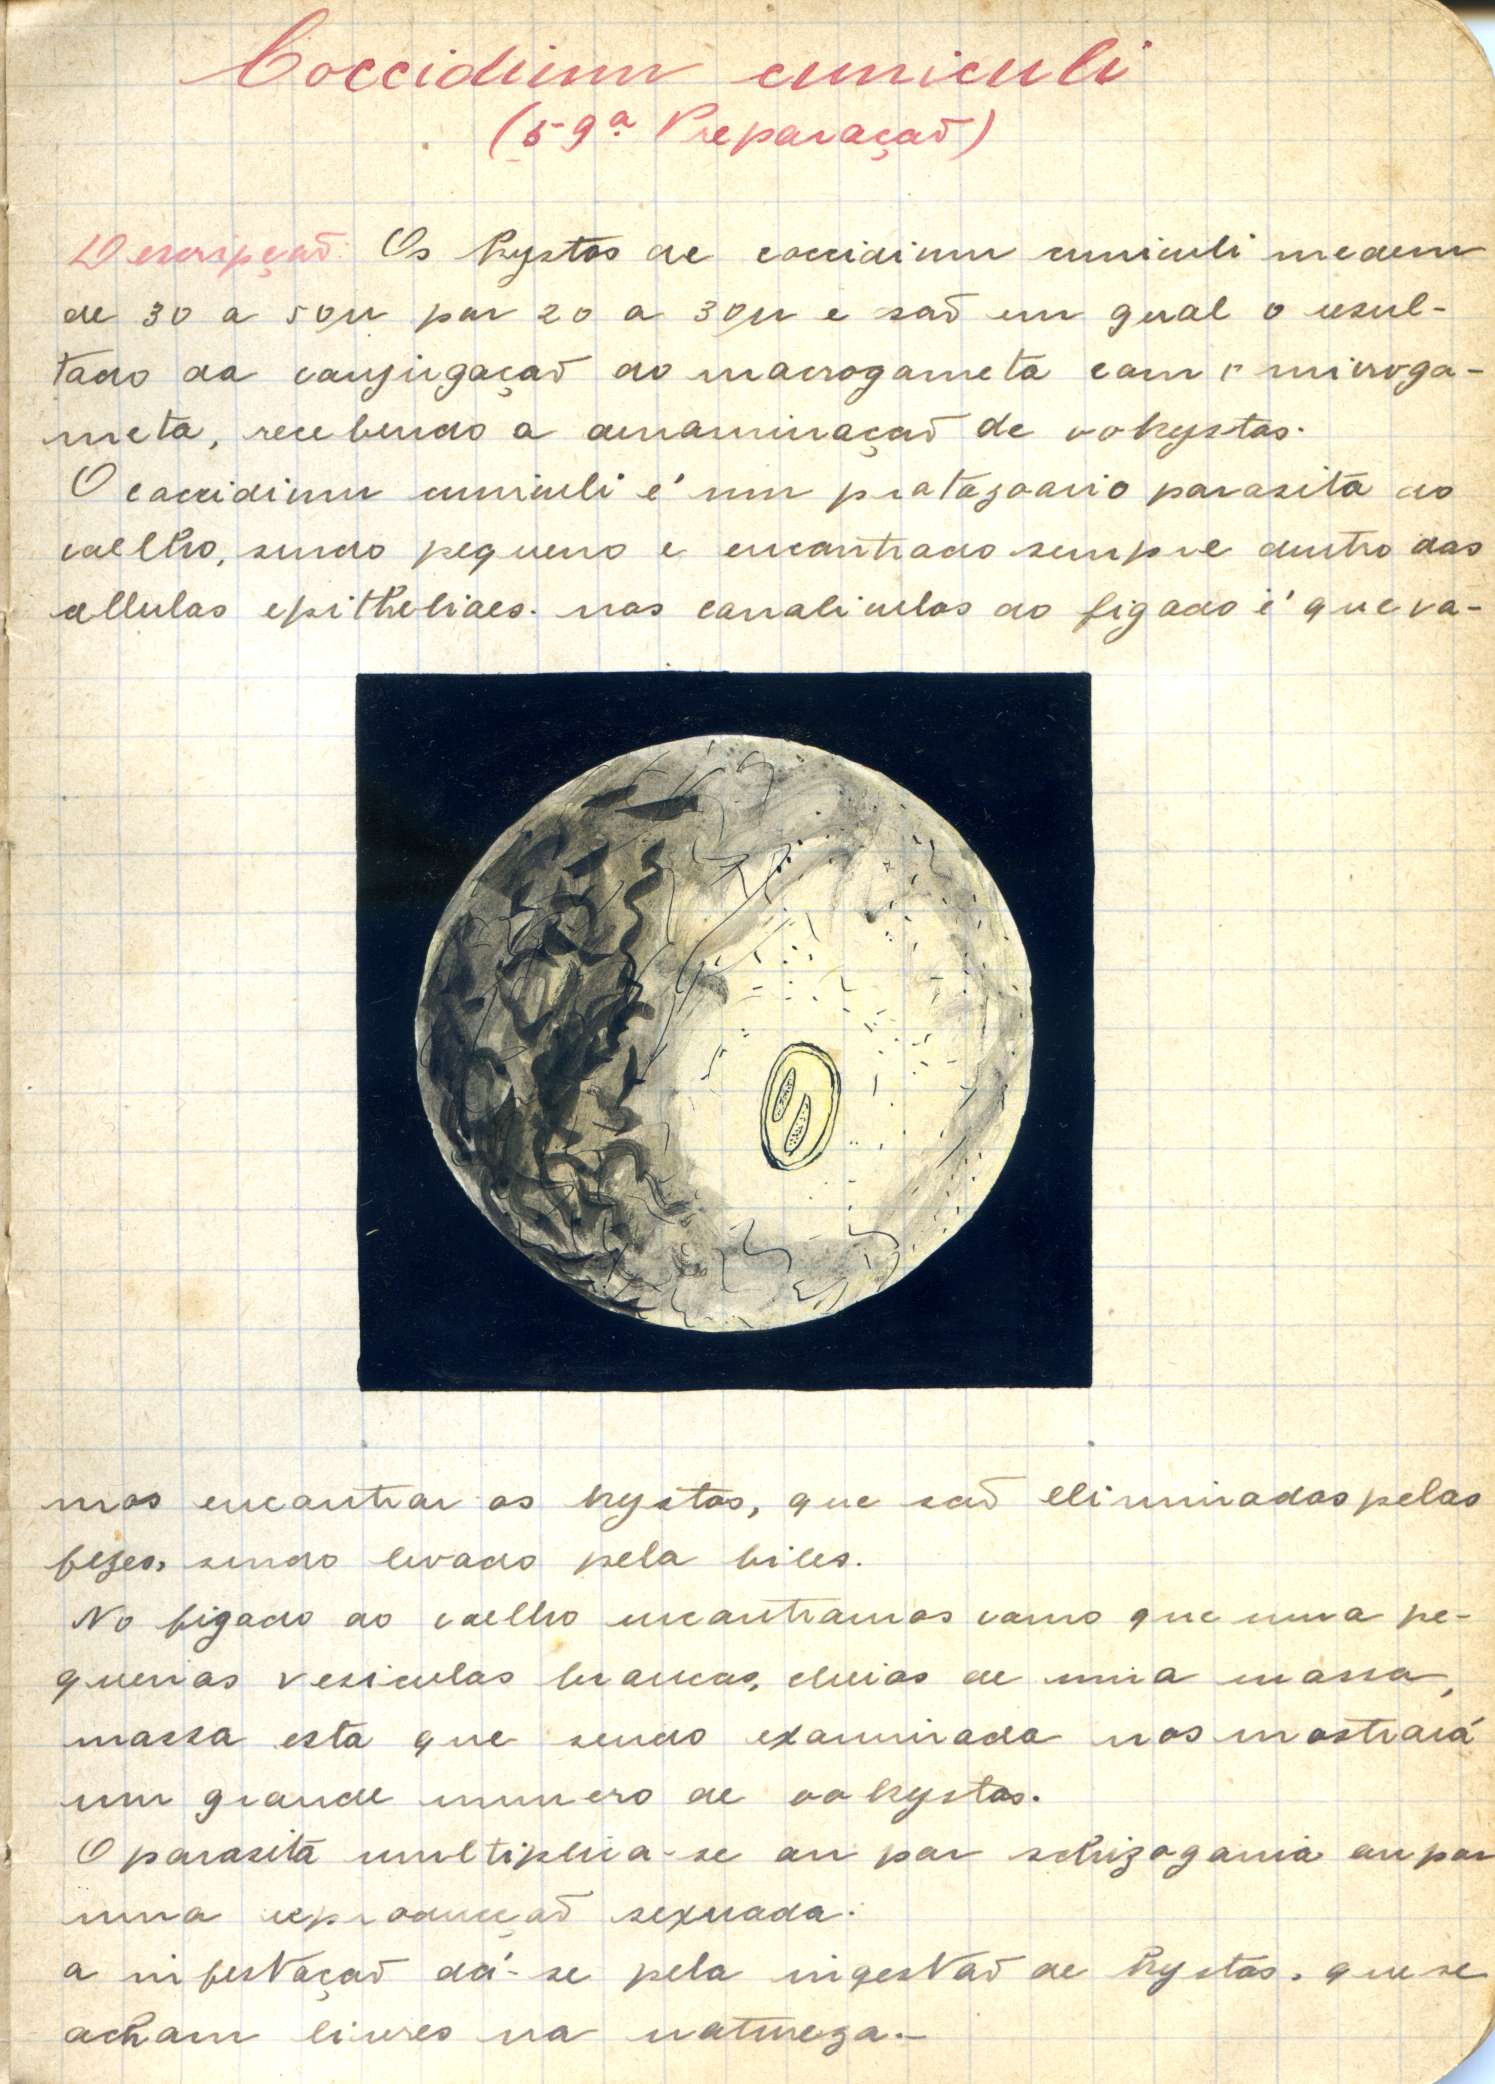 Coccidium cuniculi
(59ª Preparação)
Descripção: Os kystos de coccidium cuniculi medem
de 30 a 50µ por 20 a 30µ e são em geral o resul-
tado da conjugação do macrogameta com o microga-
meta, recebendo a denominação de ookystos.
O coccidium cuniculi é um protozoario parasita do
coelho, sendo pequeno e encontrado sempre dentro das
cellulas epitheliaes. nos canaliculos do figado é que va-
mos encontrar os kystos, que são eliminados pelas
fezes, sendo levado pela biles.
No figado do coelho encontramos como que uma pe-
quenas vesiculas brancas, cheias de uma massa,
massa esta que sendo examinada nos mostrará
um grande numero de ookystos.
O parasita multiplica-se ou por schizogonia ou por
uma reproducção sexuada.
a infestação dá-se pela ingestão de kystos, que se
acham livres na natureza.-